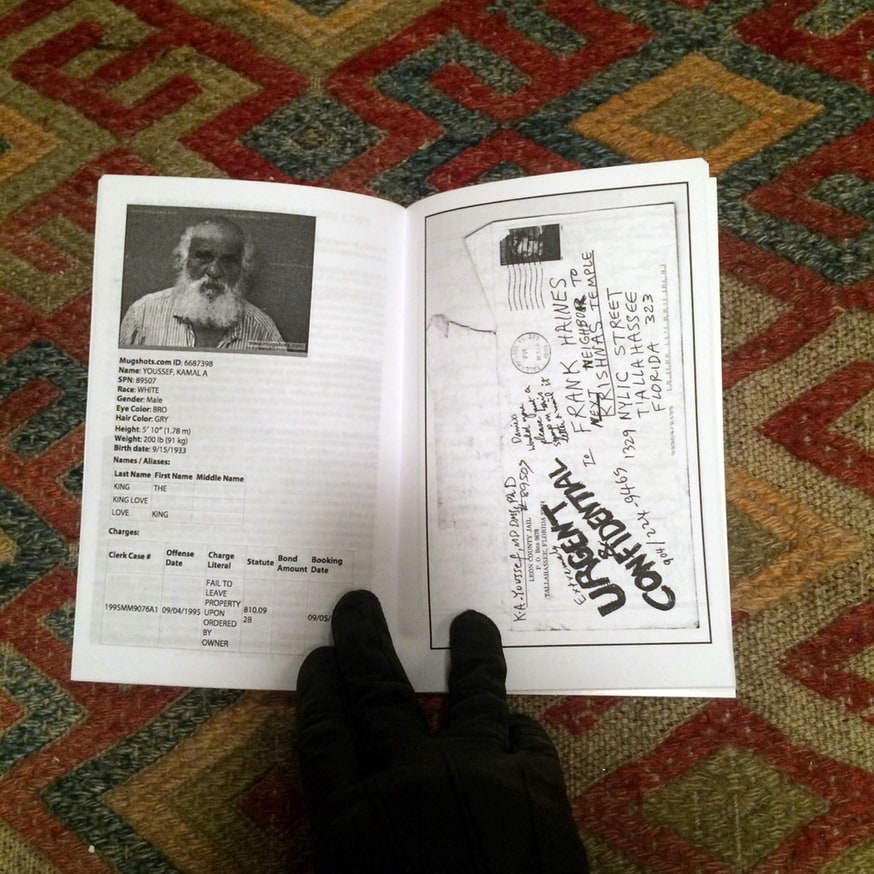 www.mugshots.com
Mugshots.com ID: 6687398
Name: YOUSSEF, KAMAL A
SPN: 89507
Race: WHITE
Gender: Male
Eye Color: BRO
Hair Color: GRY
Height: 5' 10" (1.78 m)
Weight: 200 lb (91 kg)
Birth date: 9/15/1933
Names / Aliases:
Last Name First Name Middle Name
KING THE
KING LOVE
LOVE KING
Charges:
Clerk Case # Offense Date Charge Literal Statute Bond Amount Booking Date
1995MM9076A1 09/04/1995 FAIL TO LEAVE PROPERTY UPON ORDERED BY OWNER 810.09 2B 09/05/
K.A. Youssef, MD DMS, Ph.D
LEON COUNTY JAIL # 89507
P. O. Box
TALLAHASSEE, FLORIDA
would you
please
mail it
Extremely
URGENT
&
CONFIDENTIAL
904/224-9469
TO FRANK HAINES
NEXT NEIGHBOR TO
KRISHNAS TEMPLE
1329 NYLIC STREET
TIALLAHASSEE
FLORIDA 323
PM